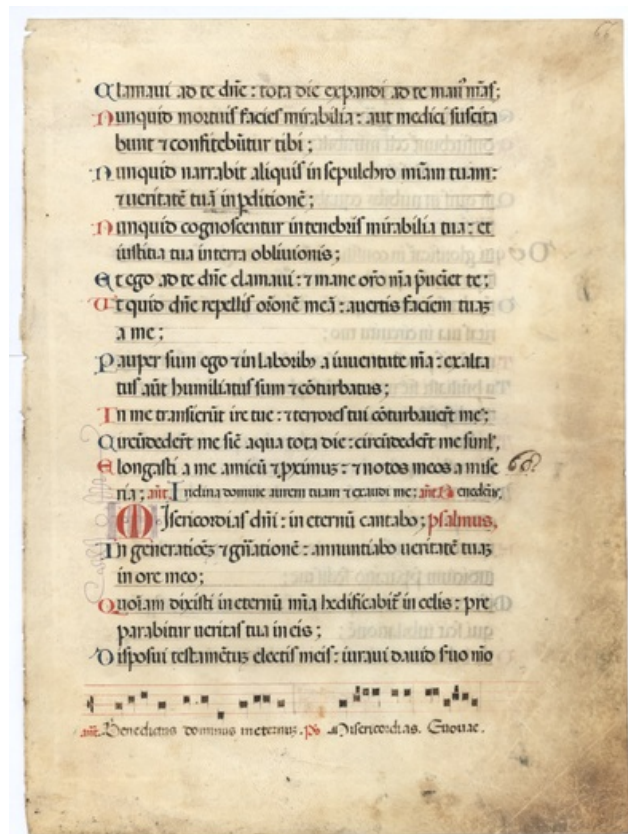 66
Clamaui ad te dñe : tota die expandi ad te man9 mãs ;
Nunquid mortuis facies mirabilia : aut medici suscita
bunt ⁊ confitebũtur tibi ;
Nunquid narrabit aliquis in sepulchro miam tuam :
⁊ ueritatẽ tuã in pditionẽ ;
Nunquid cognoscentur in tenebris mirabilia tua : et
iustitia tua in terra obliuionis ;
Et ego ad te dñe clamaui : ⁊ mane orõ mã pueiet te ;
Ut quid dñe repellis orõnẽ meã : auertis faciem tuaꝫ
a me ;
Pauper sum ego ⁊ in laborib9 a iuuentute mã : exalta
tus aũt humiliatus sum ⁊ cõturbatus ;
In me transierũt ire tue : ⁊ terrores tui cõturbauert me ;
Circũdedert me sic̃ aqua tota die : circũdedert me siml',
Elongasti a me amicũ ⁊ pximuꝫ : ⁊ notos meos a mise
ria ; añt. Inclina domine aurem tuam ⁊ exaudi me : añt. Benedict9,
Misericordias dñi : in eternũ cantabo ; psalmus,
In generatiõeꝫ ⁊ gñationẽ : annuntiabo ueritatẽ tuaꝫ
in ore meo ;
Quoĩam dixisti in eternũ mĩa hedificabit in celis : pre
parabitur ueritas tua in eis ;
Disposui testamẽtuꝫ electis meis : iuraui dauid suo mõ
añt. Benedictus dominus in eternuꝫ. ps Misericordias. Euouae.